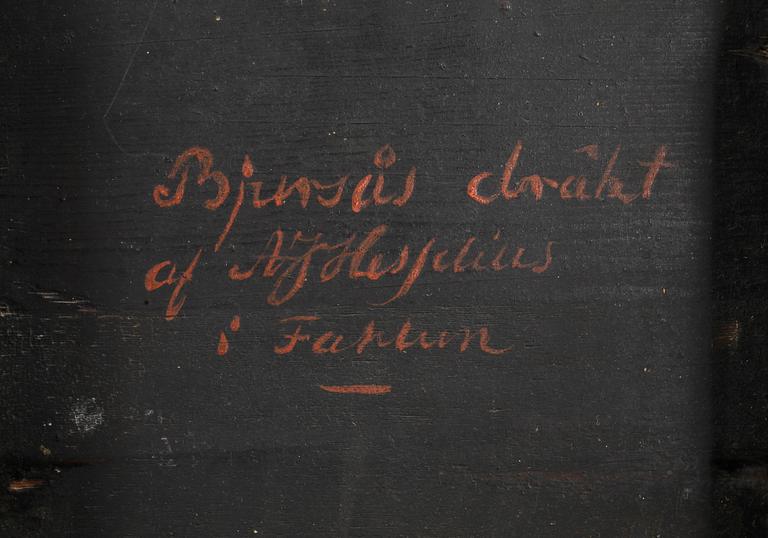 Bjursås dräkt
af AJHesselius
i Fahlun